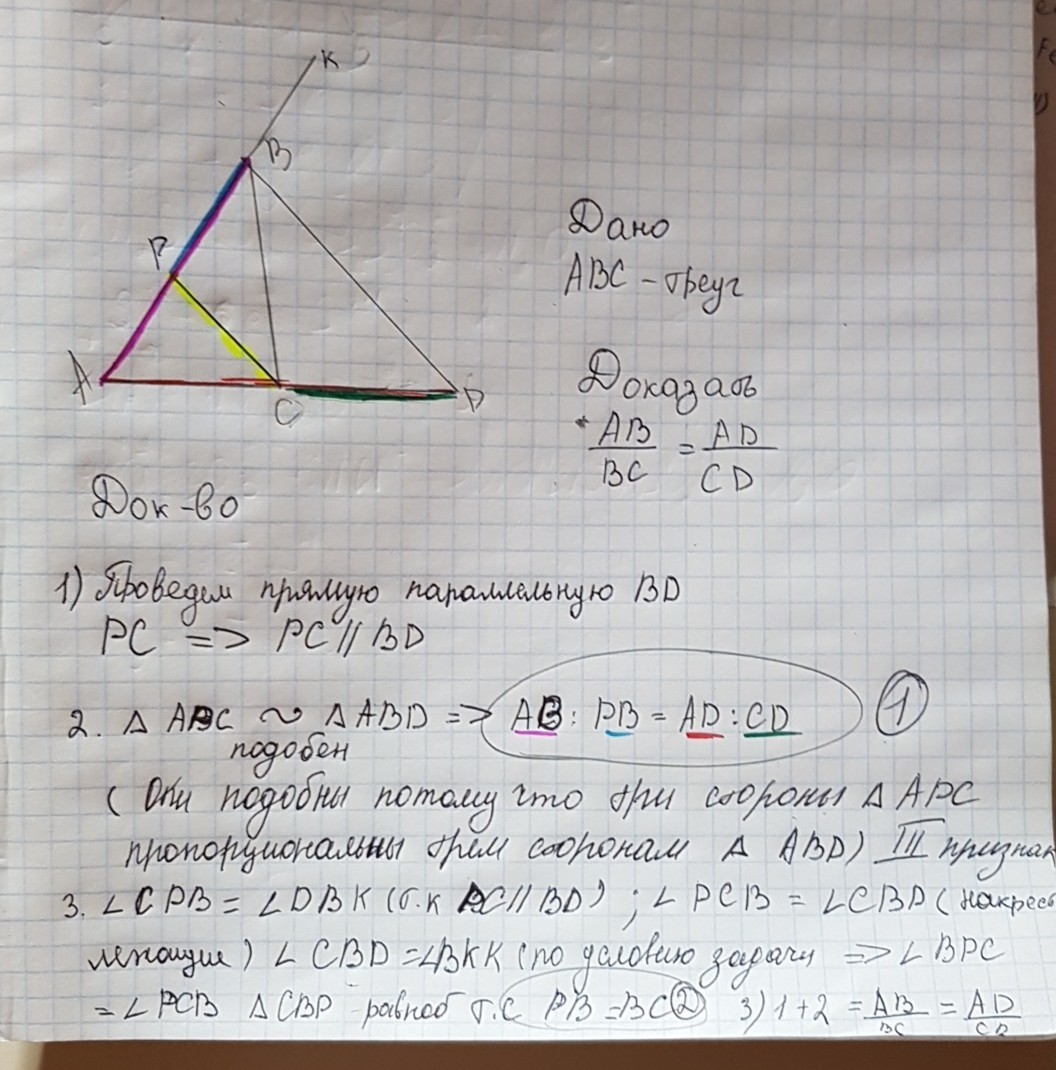 K
B
P
A
C
D
Дано
ABC - треуг
Доказать
AB/BC = AD/CD
Док-во
1) Проведем прямую параллельную BD
PC => PC // BD
2. △ APC ~ △ ABD => AB : PB = AD : CD 1
подобен
( Они подобны потому что три стороны △ APC
пропорциональны трем сторонам △ ABD) III признак
3. ∠CPB = ∠DBK (т.к PC // BD) ; ∠ PCB = ∠CBD ( накрест
лежащие ) ∠ CBD = (по условию задачи => ∠ BPC
= ∠ PCB △ CBP - равноб т.е PB = BC 2 3) 1+2 = AB/BC = AD/CD